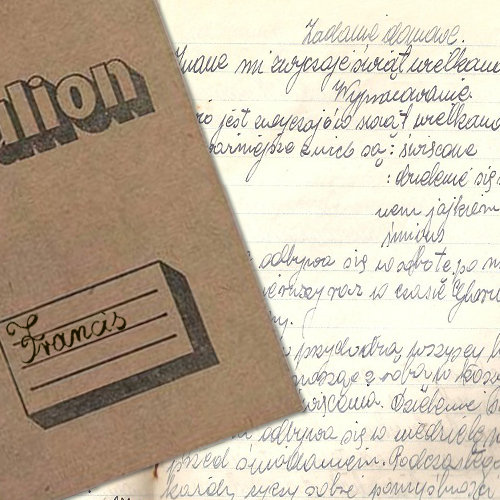 lion
Francis
Zadanie domowe.
Znane mi zwyczaje świąt wielkano
Wypracowanie
jest zwyczajów świąt wielkano
z nich są: święcone
: dzielenie się
nem jajkiem
śmigus
odbywa się w sobotę po
raz w czasie
przychodzą wszyscy
z sobą
Dzielenie
odbywa się w niedzielę
przed śniadaniem. Podczas tego
każdy życzy sobie pomyślności